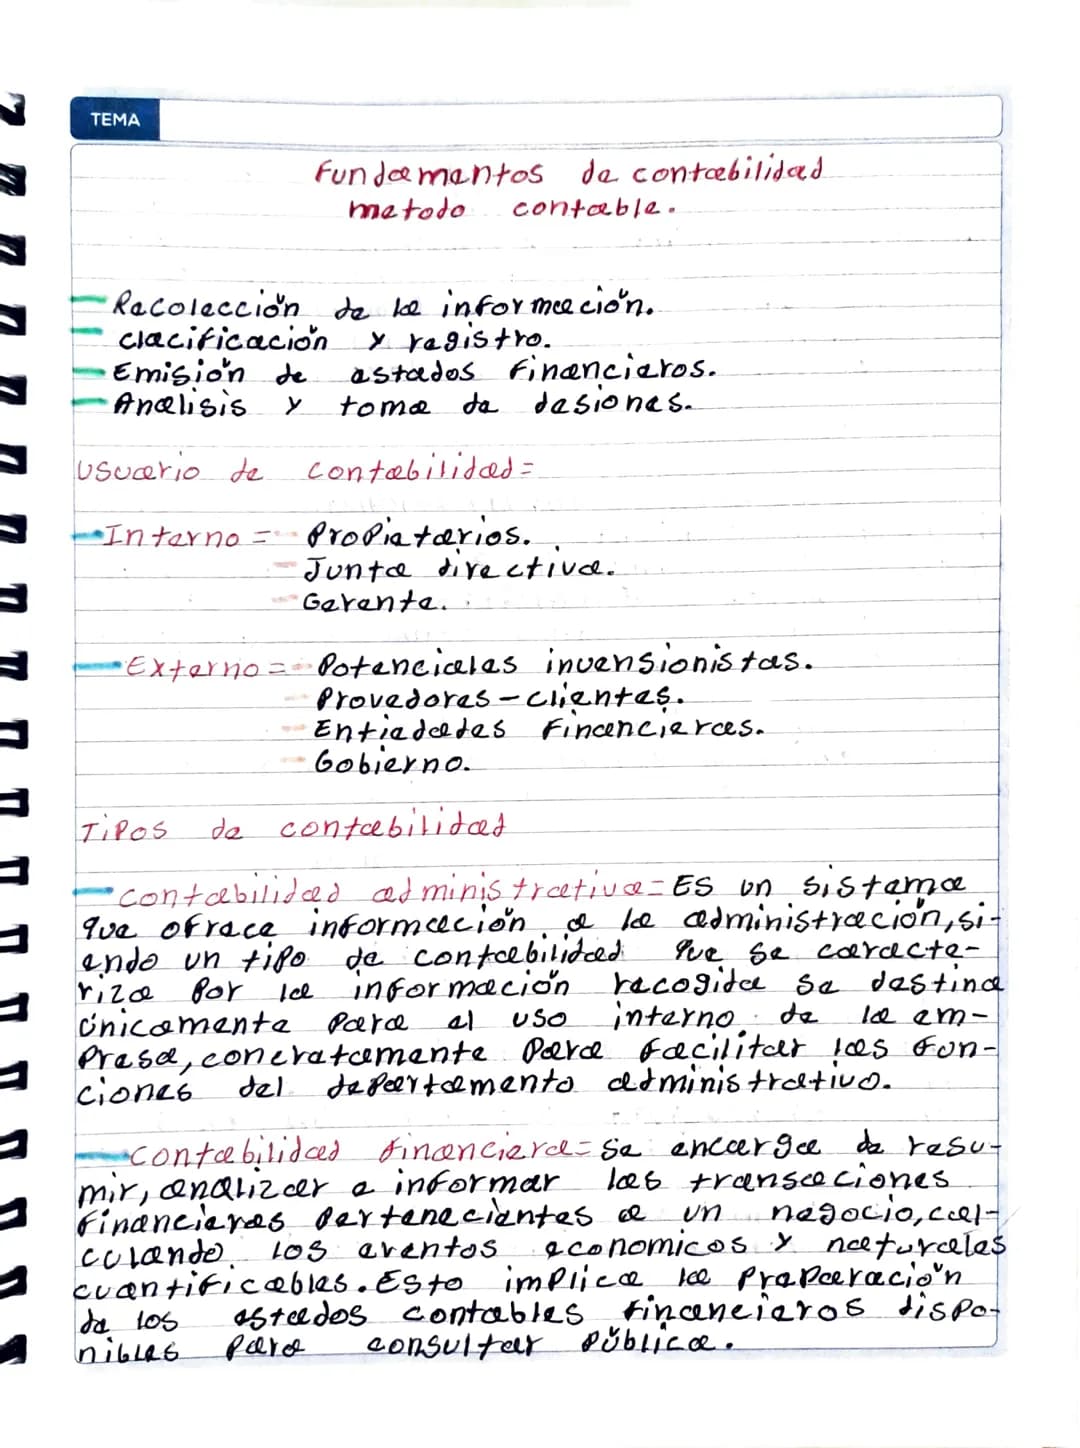 TEMA
Fundamentos de contabilidad
metodo contable.
Recolección de la información.
clacificación y registro.
Emisión de estados financieros.
Analisis y toma de desiones.
Usuario de contabilidad=
Interno = - Propietarios.
- Junta directiva.
- Gerente.
Externo = - Potenciales invensionistas.
- Provedores - clientes.
- Entidades financieras.
- Gobierno.
Tipos de contabilidad
- contabilidad administrativa = Es un sistema
que ofrece información a la administración, si-
endo un tipo de contabilidad que se caracte-
riza por la información recogida se destina
únicamente para el uso interno de la em-
presa, concretamente para facilitar las fun-
ciones del departamento administrativo.
- contabilidad financiera = se encarga de resu-
mir, analizar e informar las transaciones
financieras pertenecientes a un negocio, cal-
culando los eventos economicos y naturales
cuantificables. Esto implica la preparación
de los estados contables financieros dispo-
nibles para consultar pública.